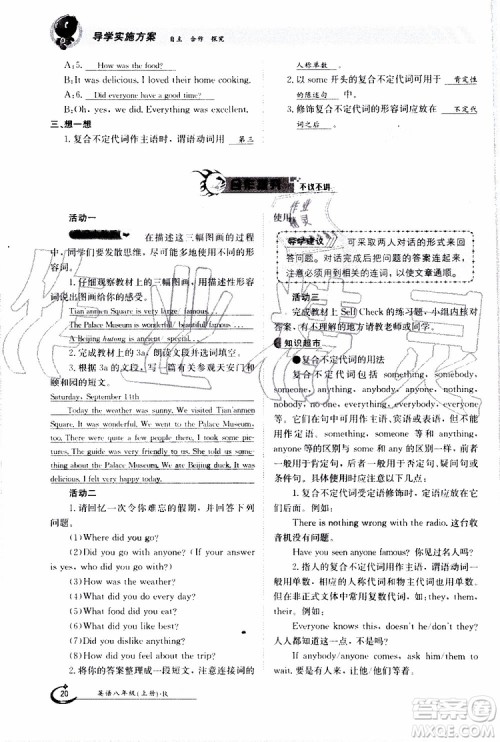 导学实施方案 自主 合作 探究
A:5. How was the food?
B:It was delicious. I loved their home cooking.
A:6. Did everyone have a good time?
B:Oh, yes, we did. Everything was excellent.
三、想一想
1.复合不定代词作主语时，谓语动词用 第三
人称单数。
2.以 some 开头的复合不定代词可用于 肯定性
的陈述句。
3.修饰复合不定代词的形容词应放在 不定代
词之后。
不议不讲
活动一
在描述这三幅图画的过程
中，同学们要发散思维，尽可能多地用不同的形
容词。
1.仔细观察教材上的三幅图画，用描述性形
容词说出你的感觉。
Tian'anmen Square is very large/ famous
The Palace Museum is wonderful/ beautiful famous
A Beijing hutong is ancient special
2.完成教材上的 3a,朗读文段并展示。
3.根据 3a 的文段，写一篇有关参观北京
的短文。
Saturday, September 11th
Today the weather was sunny. We visited Tian'anmen
Square. It was wonderful. We went to the Palace Museum,
too. There were quite a lot of people there. The most
delicious food was Beijing Duck.
活动二
1.请回忆一次你难忘的假期,并回答以下
问题。
(1)Where did you go?
(2)Did you go with anyone? (If your answer
is yes,who went with you?)
(3)How was the weather?
(4)What did you do every day?
(5)What food did you eat?
(6)What did you like best?
(7)How did you feel about the trip?
2.将你的答案整理成一段短文,注意连词的
使用。
导学建议 可采取两人对话的形式来回
答问题。对话完成后把问题的答案连起来,
注意使用恰当的连词,以使文章通顺。
活动三
完成教材上 Self Check 的练习题,小组内核对
答案,有不理解的地方请教老师或其他同学。
知识超市
●复合不定代词的用法
复合不定代词包括 something, somebody,
someone, anything, anybody, anyone, nothing,
nobody, no one, everything, everybody, everyone
等。它们在句中可以用作主语、宾语或表语,但不
能用作定语。something, someone 等和 anything,
anyone 等的区别与 some 和 any 的区别一样,前者
一般用于肯定句,后者一般用于否定句、疑问句或
条件句。具体使用时应注意以下几点:
1.复合不定代词受定语修饰时,定语应放在
它们后面。
There is nothing wrong with the radio. 这台收
音机没有毛病。
Have you seen anyone famous? 你见过名人吗?
2.指人的复合不定代词用作主语时,谓语动词
用单数,相应的人称代词和物主代词也用单数。但
在非正式文体中常用复数代词。
Everyone knows this, doesn't he/don't they?
人人都知道这一点,不是吗?
If anybody/anyone comes, ask him/them to
wait. 要是有人来,让他等着。
20 英语八年级(上册)·R